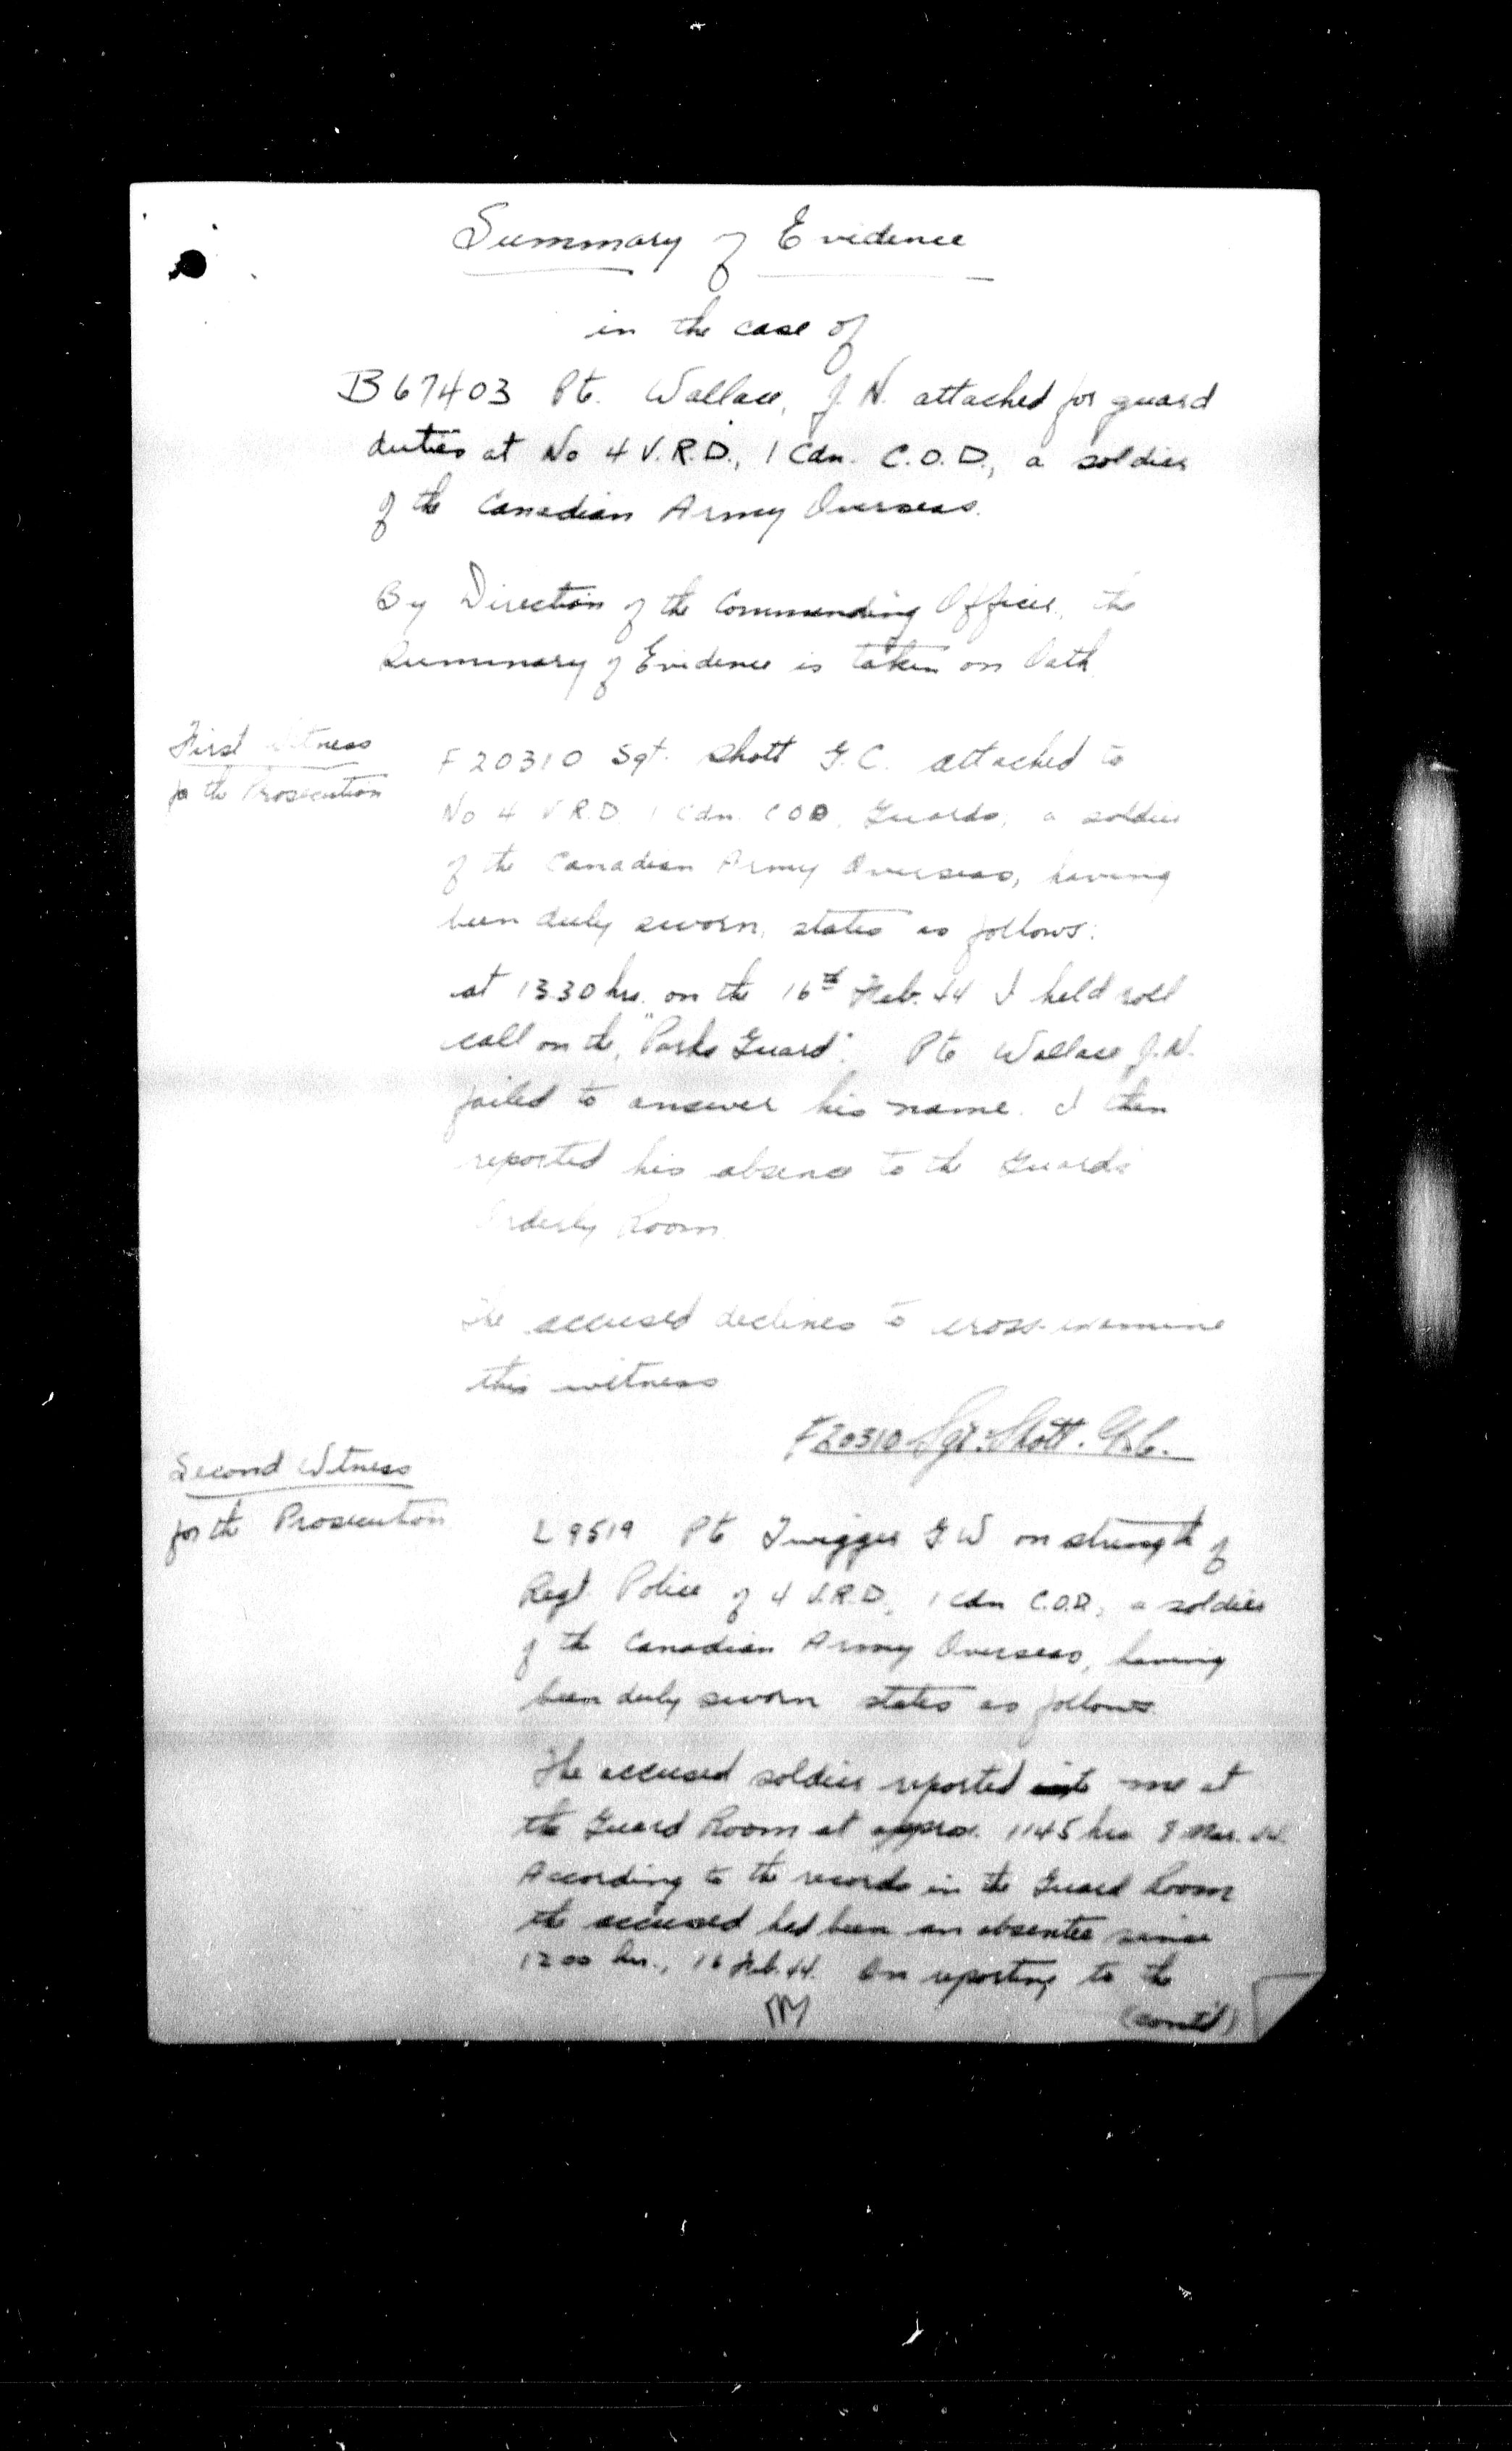 Summary of Evidence
in the case of
B67403 Pte. Wallace, J. N. attached for guard
duties at No 4 V.R.D., 1 Cdn. C.O.D., a soldier
of the Canadian Army Overseas.
By Direction of the Commanding Officer, the
Summary of Evidence is taken on Oath.
First Witness
for the Prosecution
F 20310 Sgt. Shott G.C. attached to
No 4 V.R.D. 1 Cdn. C.O.D. Guards, a soldier
of the Canadian Army Overseas, having
been duly sworn, states as follows:
at 1330 hrs. on the 16th Feb. 44 I held roll
call on the "Parks Guard". Pte Wallace J.N.
failed to answer his name. I then
reported his absence to the Guards
Orderly Room.
The accused declines to cross-examine
this witness
F20310 Sgt. Shott. G.C.
Second Witness
for the Prosecution
L 9519 Pte Twigger G W on strength of
Regt. Police of 4 V.R.D., 1 Cdn C.O.D., a soldier
of the Canadian Army Overseas, having
been duly sworn states as follows.
The accused soldier reported to me at
the Guard Room at approx. 1145 hrs Mar. 44.
According to the records in the Guard Room
the accused had been an absentee since
1200 hrs., 16 Feb. 44. On reporting to the
(cont'd)